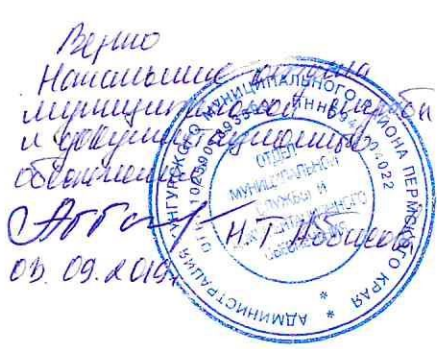 Верно
Начальник отдела
муниципальной службы
и документационного
обеспечения
Н.Т.
03.09.2019
АДМИНИСТРАЦИЯ КУНГУРСКОГО МУНИЦИПАЛЬНОГО РАЙОНА ПЕРМСКОГО КРАЯ
ОТДЕЛ
МУНИЦИПАЛЬНОЙ
СЛУЖБЫ И
ДОКУМЕНТАЦИОННОГО
ОБЕСПЕЧЕНИЯ